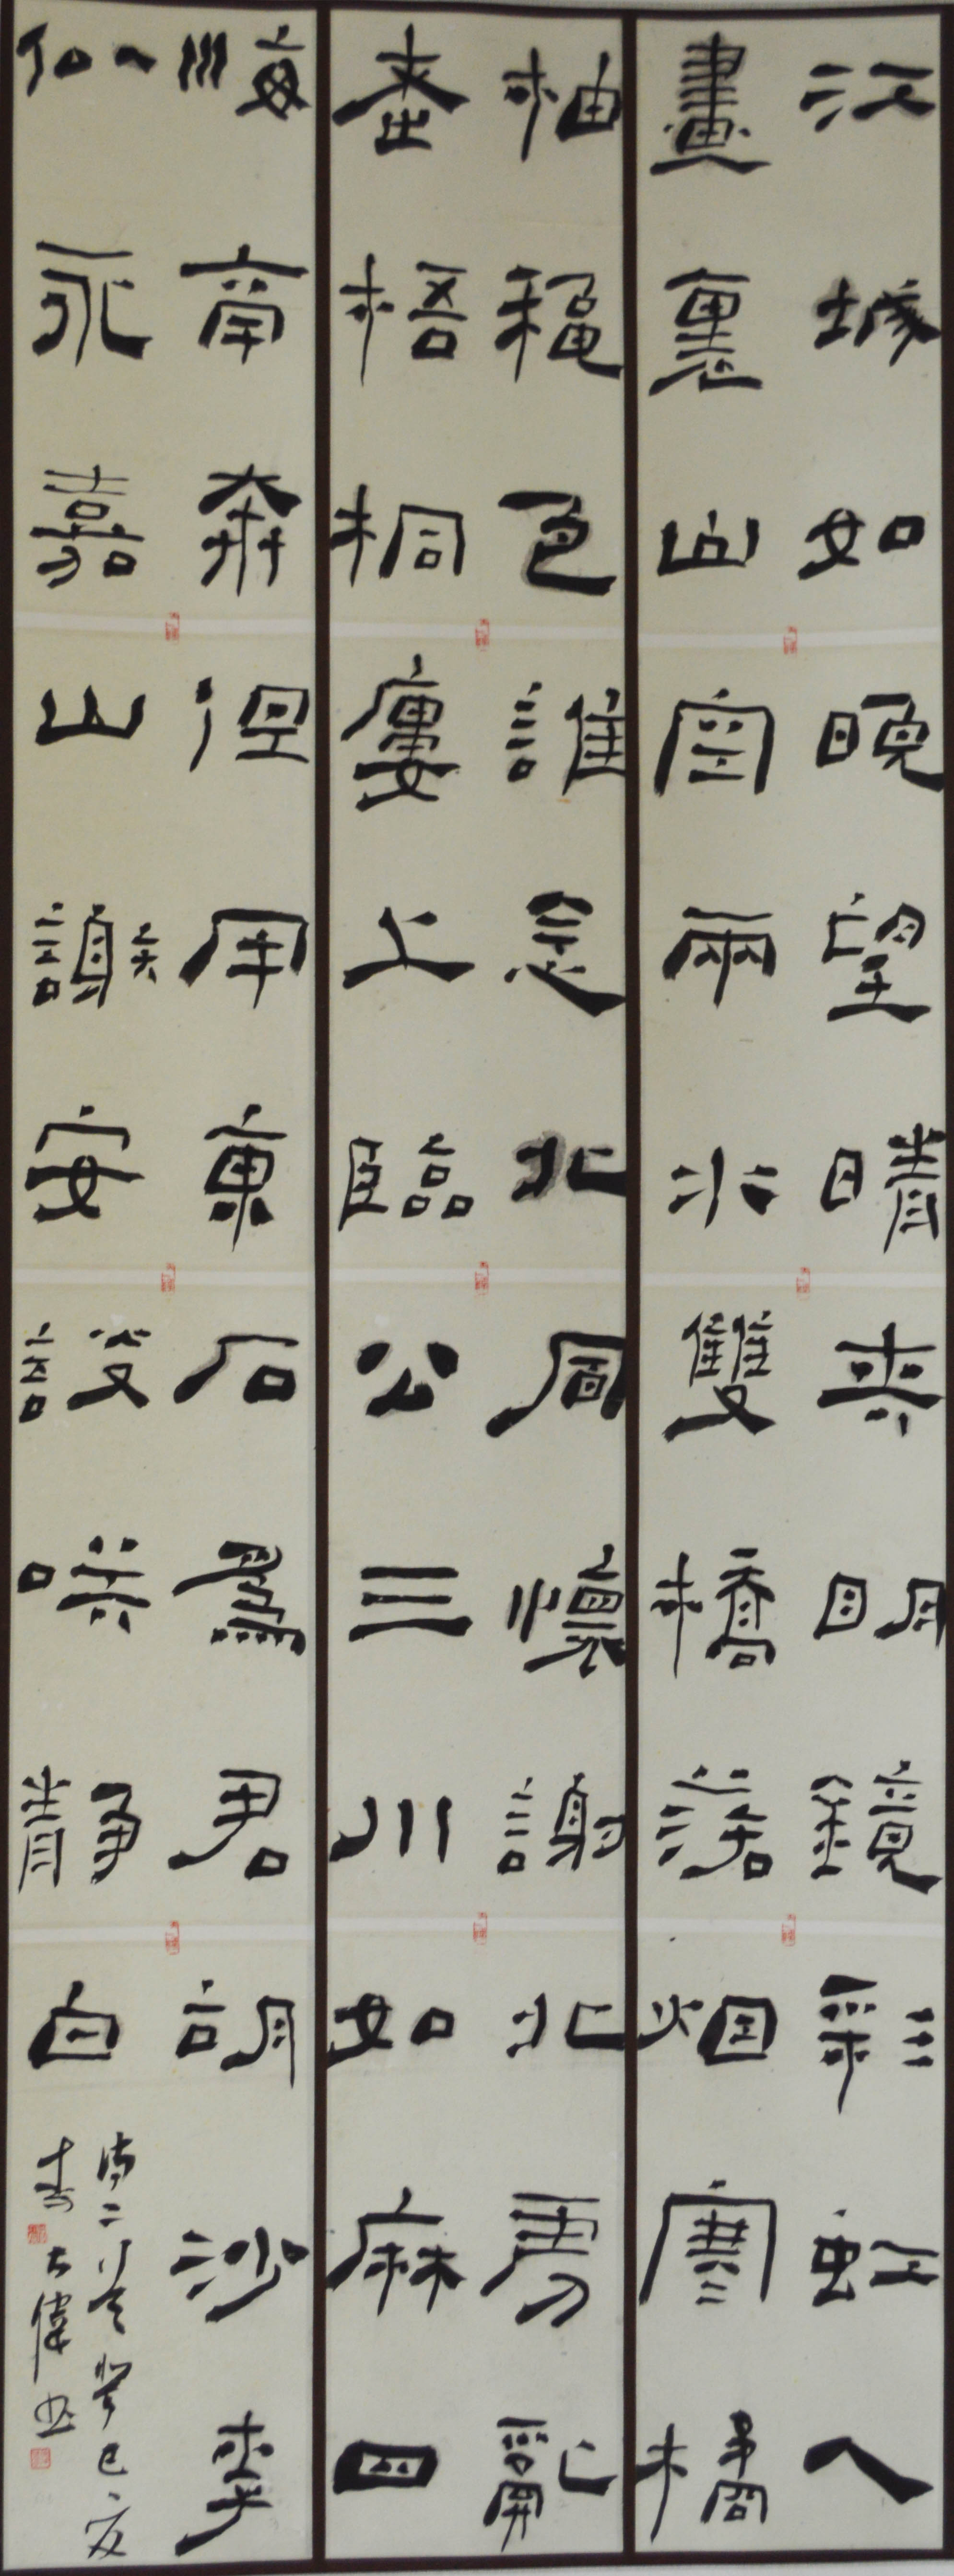 江城如
畫裏山
晚望晴
空兩水
夾明鏡
雙橋落
彩虹人
烟寒橘
柚穐色
老梧桐
誰念北
樓上臨
風懷謝
公三川
北虜亂
如麻四
海南奔
似永嘉
但用東
山謝安
石爲君
談笑靜
胡沙李
白
詩二首癸巳夏
李 偉書